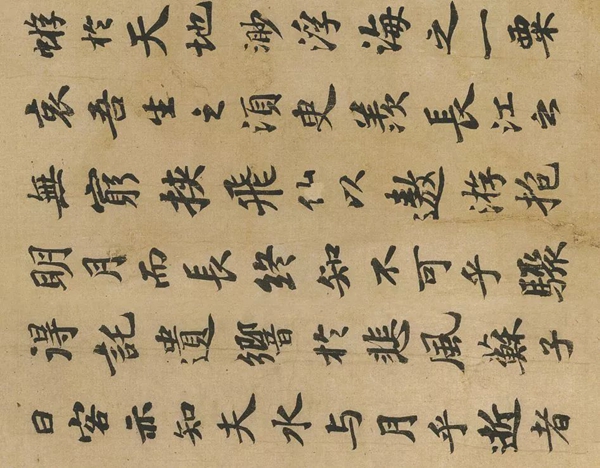 蝣於天地渺浮海之一粟
哀吾生之須臾羨長江之
無窮挾飛仙以遨游抱
明月而長終知不可乎驟
得託遺響於悲風蘇子
曰客亦知夫水与月乎逝者